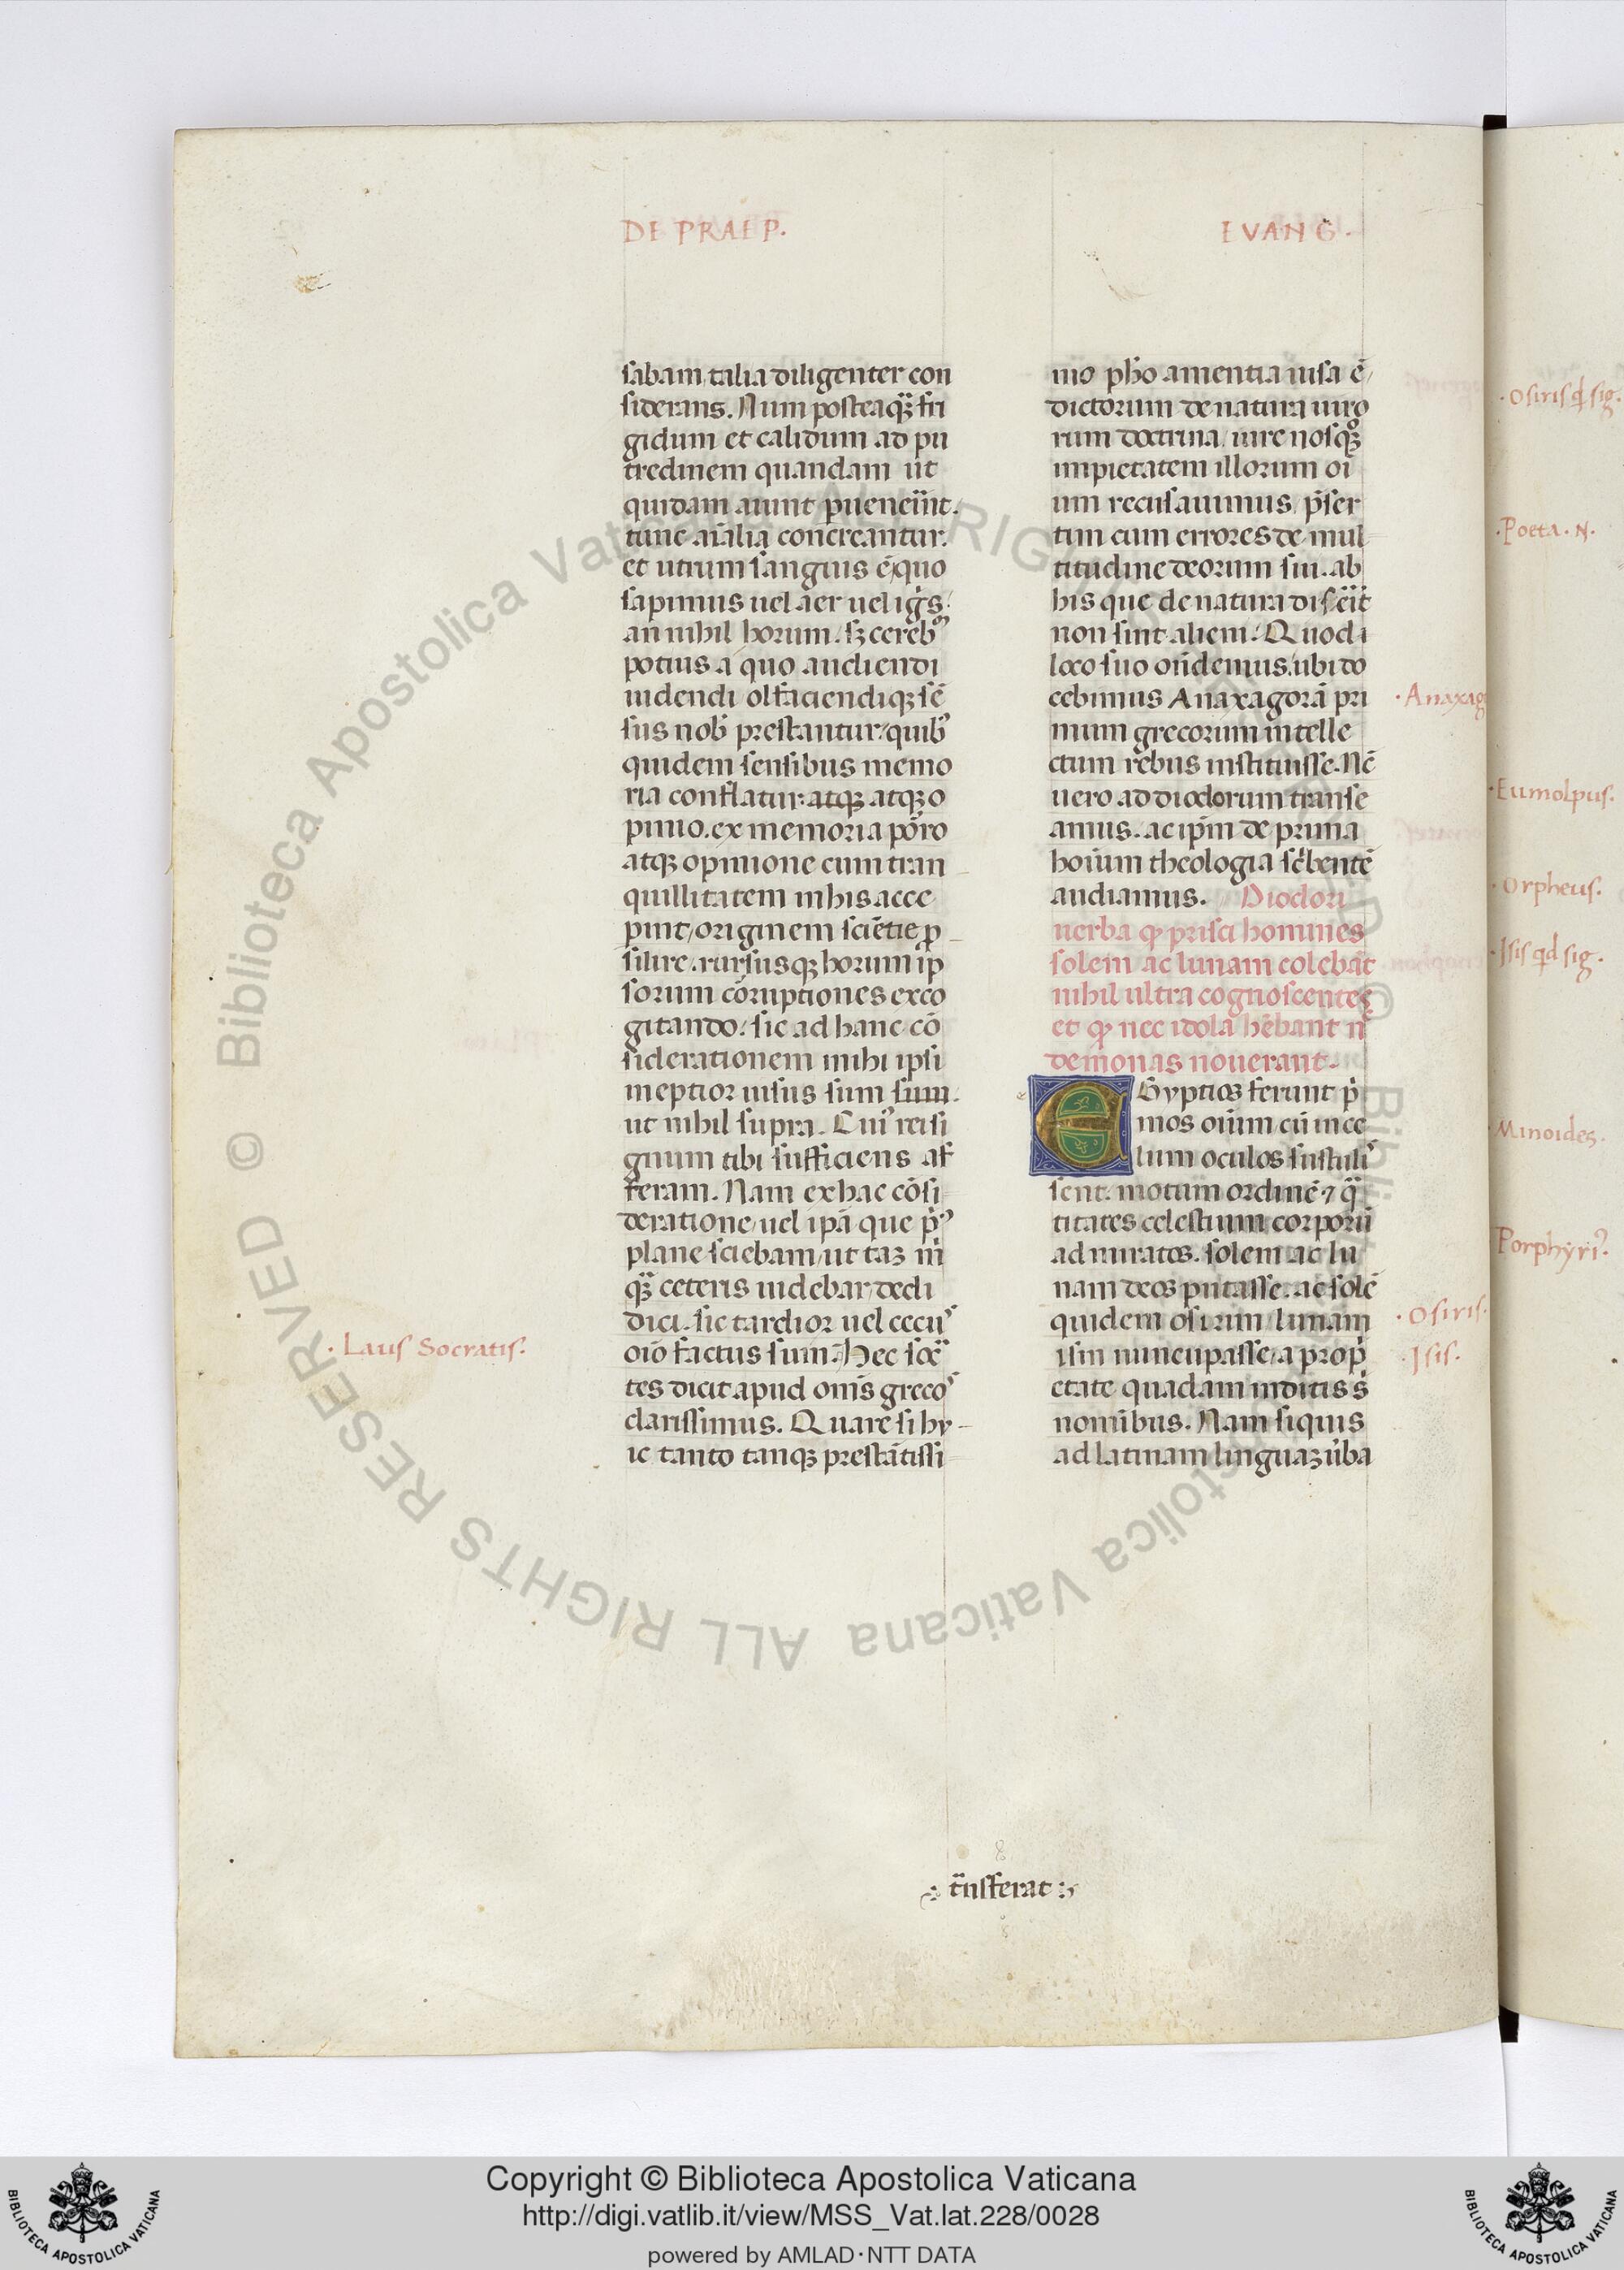 DE PRAEP.
EVANG.
sabam, talia diligenter con
siderans. Num posteaq̃ fri
gidum et calidum ad pu
tredinem quandam ut
quidam aiunt ꝑueneñt.
tunc aĩalia concreantur.
et utrum sanguis ẽ quo
sapimus uel aer uel igĩs.
an nihil horum. sꝫ cerebꝰ
potius a quo audiendi
uidendi olfaciendiqꝫ sẽ
sus nob̃ prestantur, quibꝰ
quidem sensibus memo
ria conflatur. atqꝫ atqꝫ o
pinio. ex memoria põro
atqꝫ opinione cum tran
quillitatem in his acce
pint, originem sciẽtie ꝓ
silire. rursusqꝫ horum ip
sorum cõruptiones exco
gitando. sic ad hanc cõ
siderationem mihi ipsi
ineptior uisus sum sum.
ut nihil supra. Cuiꝰ rei si
gnum tibi sufficiens af
feram. Nam ex hac cõsi
deratione, uel ipã que pꝰ
plane sciebam, ut taꝫ m̃
qꝫ̃ ceteris uidebar, dedi
dici. sic tardior uel cecuꝰ
oĩo factus sum. Hec socª
tes dicit apud om̃s grecoꝰ
clarissimus. Quare si hu
ic tanto tanqꝫ prestãtissi
· Laus Socratis.
mo pho amentia uisa ẽ,
dictorum de natura uiro
rum doctrina, iure nosqꝫ
impietatem illorum oĩ
um recusauimus, p̃ser
tim cum errores de mul
titudine deorum sui. ab
his que de natura disseñt
non sint alieni. Quod i
loco suo oñdemus. ubi do
cebimus Anaxagorã pri
mum grecorum intelle
ctum rebus instituisse. Nc̃
uero ad diodorum transe
amus. ac ip̃m de prima
hoĩum theologia scͥbentẽ
audiamus. Diodori
uerba ꝙ prisci homines
solem ac lunam colebãt
nihil ultra cognoscentes
et ꝙ nec idola hẽbant nͨ
demonas nouerant.
EGyptios ferunt pͥ
mos oĩum cũ in ce
lum oculos sustuliꝰ
sent. motum ordinẽ ⁊ qª
titates celestium corporũ
admiratos. solem ac lu
nam deos putasse. ac solẽ
quidem osirim, lunam
isin nuncupasse, a propͥ
etate quadam inditis s̃
nomĩbus. Nam siquis
ad latinam linguaꝫ ũba
· Anaxag
· Osiris.
· Isis.
t̃nsferat
· Osiris qd̃ sig.
· Poeta. N.
· Eumolpus.
· Orpheus.
· Isis qd̃ sig.
Minoides.
Porphyriꝰ.
Copyright © Biblioteca Apostolica Vaticana
http://digi.vatlib.it/view/MSS_Vat.lat.228/0028
powered by AMLAD·NTT DATA
BIBLIOTECA APOSTOLICA VATICANA
BIBLIOTECA APOSTOLICA VATICANA
© Biblioteca Apostolica Vaticana ALL RIGHTS RESERVED © Biblioteca Apostolica Vaticana ALL RIGHTS RESERVED